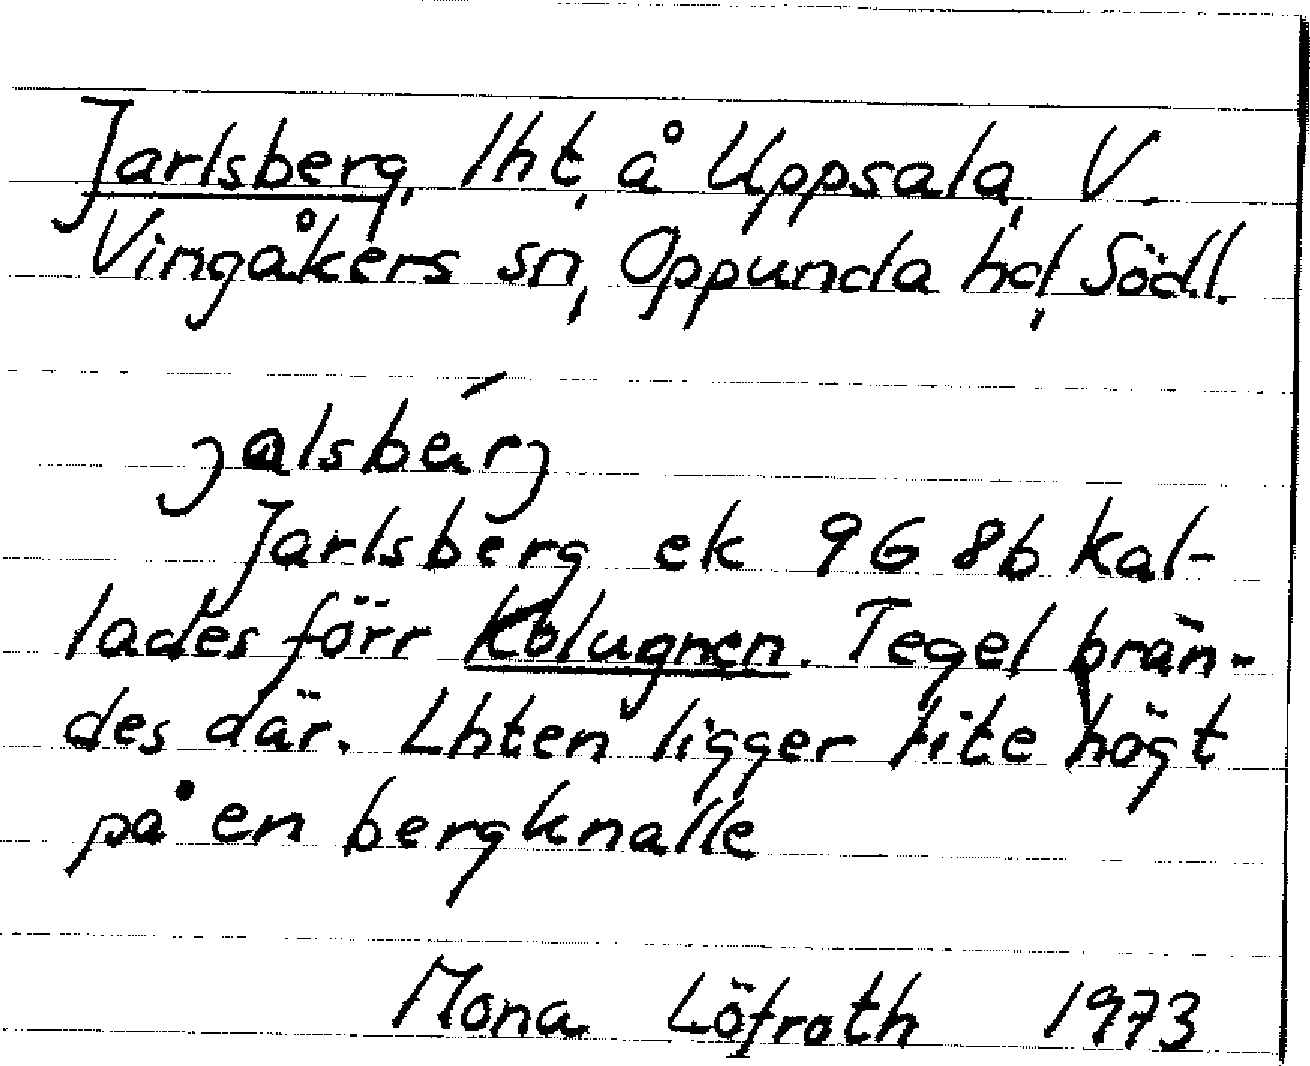 Jarlsberg, lht, å Uppsala, V.
Vingåkers sn, Oppunda hd, Södl.
jalsbérj
Jarlsberg ek 9G 8b kal-
lades förr Kolugnen. Tegel brän-
des där. Lhten ligger lite högt
på en bergknalle
Mona Löfroth 1973